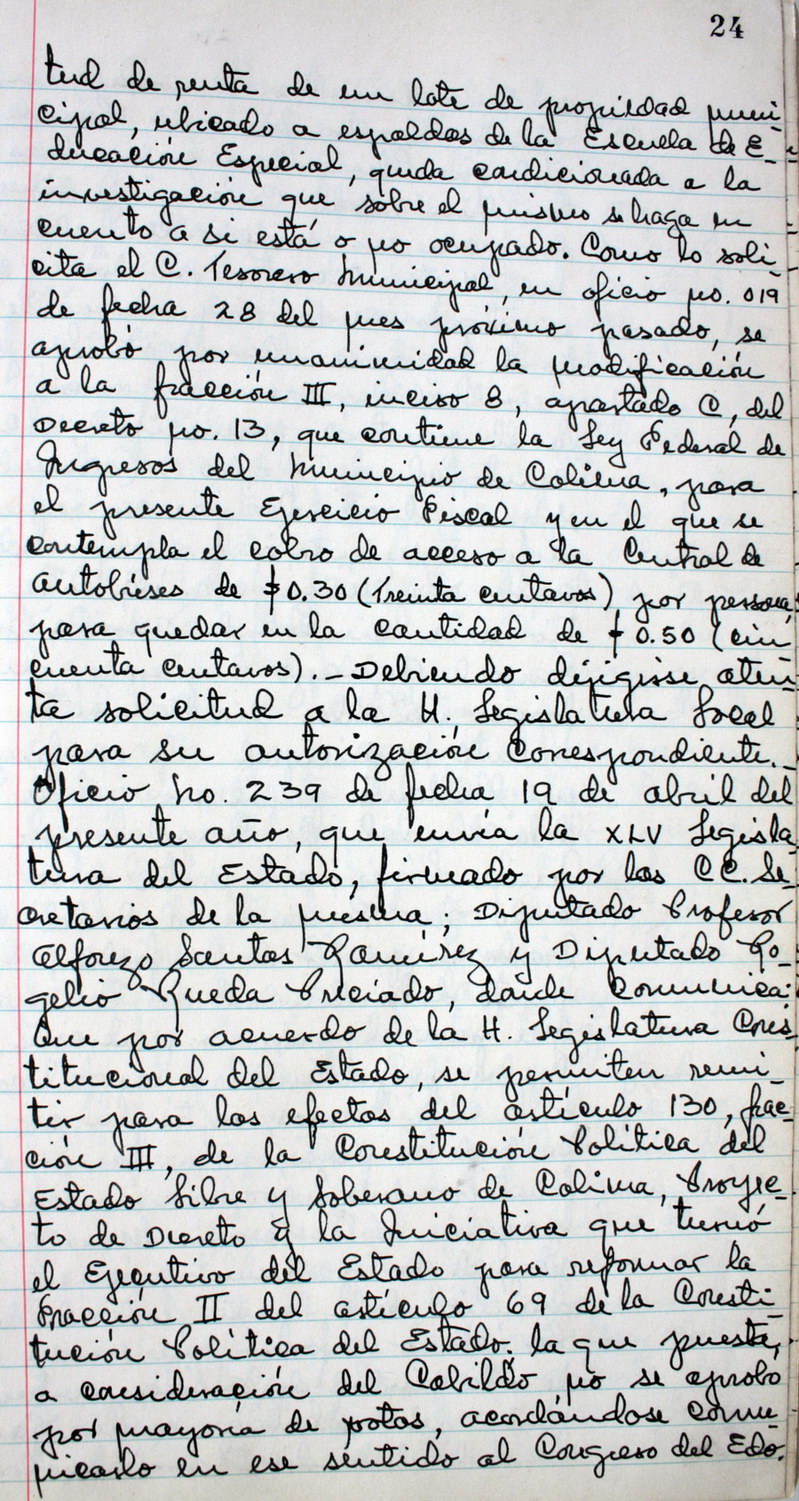 24
tud de renta de un lote de propiedad muni-
cipal, ubicado a espaldas de la Escuela de E-
ducación Especial, queda condicionada a la
investigación que sobre el mismo se haga en
cuento a si está o no ocupado. Como lo soli-
cita el C. Tesorero Municipal, en oficio no. 019
de fecha 28 del mes próximo pasado, se
aprobó por unanimidad la modificación
a la fracción III, inciso 8, apartado C, del
Decreto no. 13, que contiene la Ley Federal de
Ingresos del Municipio de Colima, para
el presente Ejercicio Fiscal y en el que se
contempla el cobro de acceso a la Central de
Autobúses de $0.30 (Treinta centavos) por persona,
para quedar en la cantidad de $0.50 (cin
cuenta centavos).- Debiendo dirigirse aten-
ta solicitud a la H. Legislatura Local
para su autorización correspondiente.-
Oficio No. 239 de fecha 19 de abril del
presente año, que envía la XLV Legisla-
tura del Estado, firmado por los CC. Se-
cretarios de la misma; Diputado Profesor
Alfonzo Santos Ramírez y Diputado Ro-
gelio Rueda Preciado, donde comunica:
Que por acuerdo de la H. Legislatura Cons
titucional del Estado, se permiten remi-
tir para los efectos del artículo 130, frac-
ción III, de la Constitución Política del
Estado Libre y Soberano de Colima, Proyec-
to de Decreto y la Iniciativa que turnó
el Ejecutivo del Estado para reformar la
Fracción II del artículo 69 de la Consti-
tución Política del Estado. la que puesta,
a consideración del Cabildo no se aprobo
por mayoría de votos, acordándose comu-
nicarlo en ese sentido al Congreso del Edo.